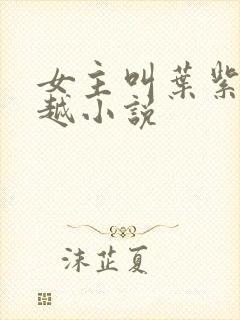 女主叫葉紫
越小説
沫芷夏